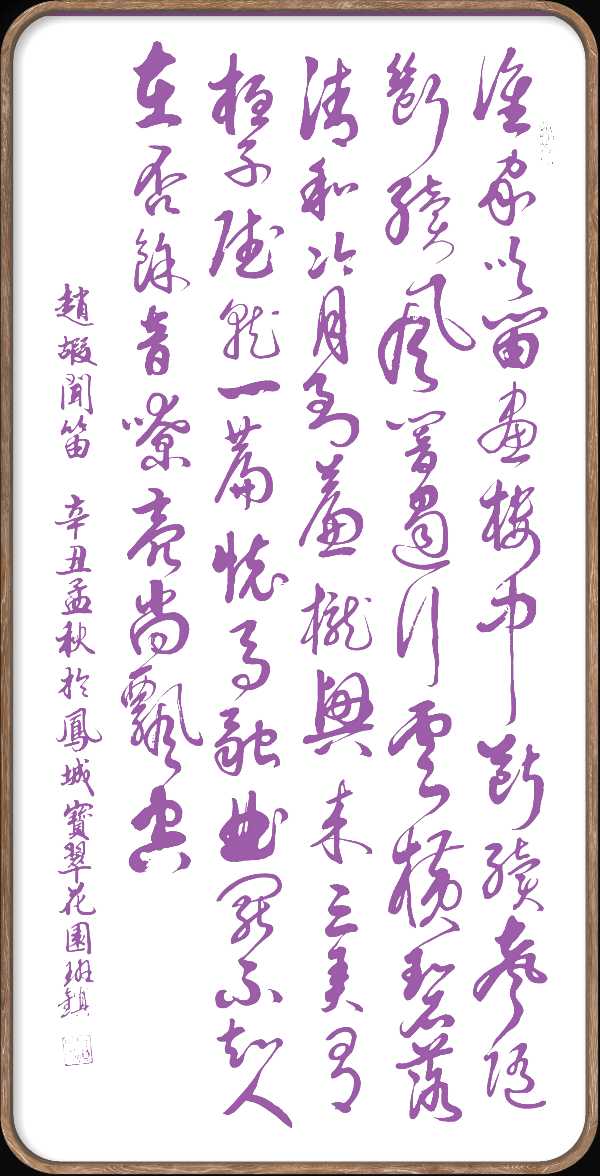 誰家吹笛畫樓中斷續聲隨
斷續風響遏行雲橫碧落
清和冷月到簾櫳興來三弄有
桓子賦就一篇懷馬融曲罷不知人
在否餘音嘹亮尚飄空
趙嘏聞笛 辛丑孟秋於鳳城寶翠花園班鎮